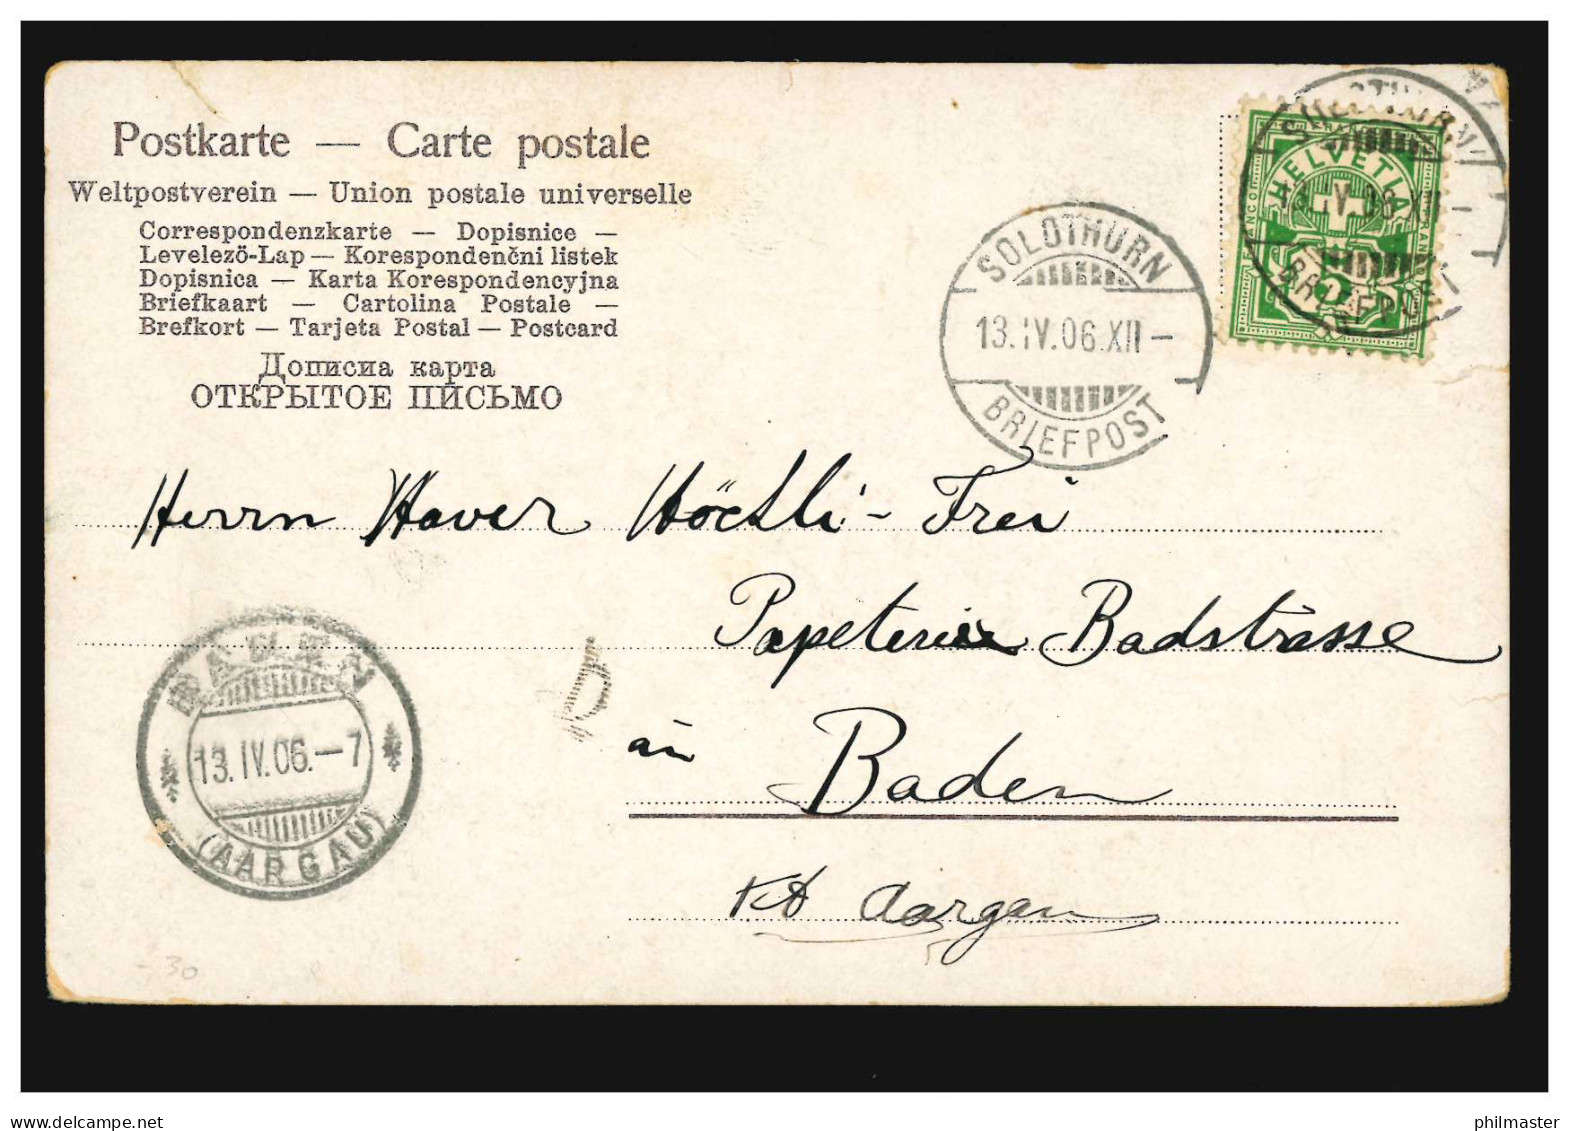 Postkarte — Carte postale
Weltpostverein — Union postale universelle
Correspondenzkarte — Dopisnice —
Levelező-Lap — Korespondenčni listek
Dopisnica — Karta Korespondencyjna
Briefkaart — Cartolina Postale —
Brefkort — Tarjeta Postal — Postcard
Дописна карта
ОТКРЫТОЕ ПИСЬМО
HELVETIA
FRANCO
5
SOLOTHURN
13.IV.06.XII —
BRIEFPOST
SOLOTHURN
13.IV.06.XII —
BRIEFPOST
Herrn Xaver Höchli-Frei
Papeterie Badstrasse
in Baden
Kt Aargau
BADEN
13.IV.06.—7
(AARGAU)
D
-30
delcampe.net
philmaster